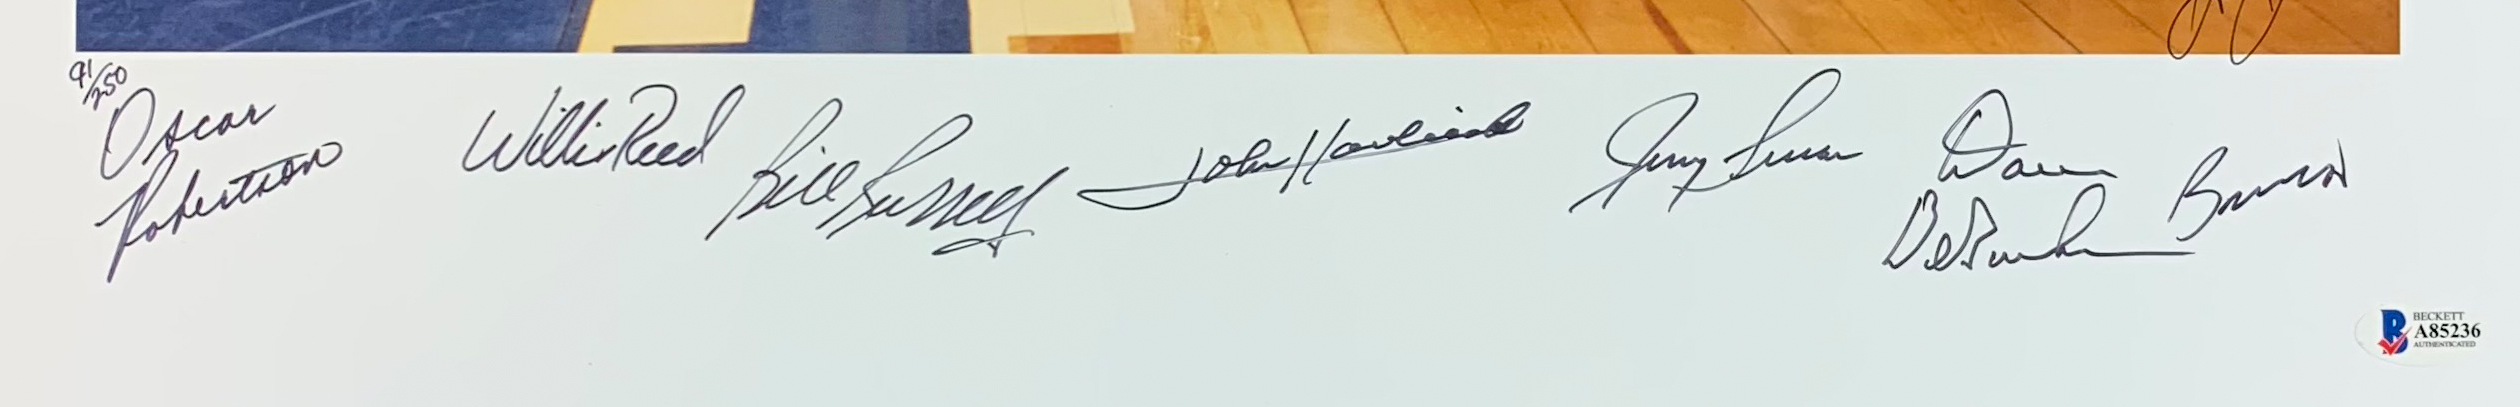 91/250
Oscar
Robertson
Willis Reed
Bill Russell
John Havlicek
Jerry Lucas
Dave
DeBusschere
BECKETT
A85236
AUTHENTICATED